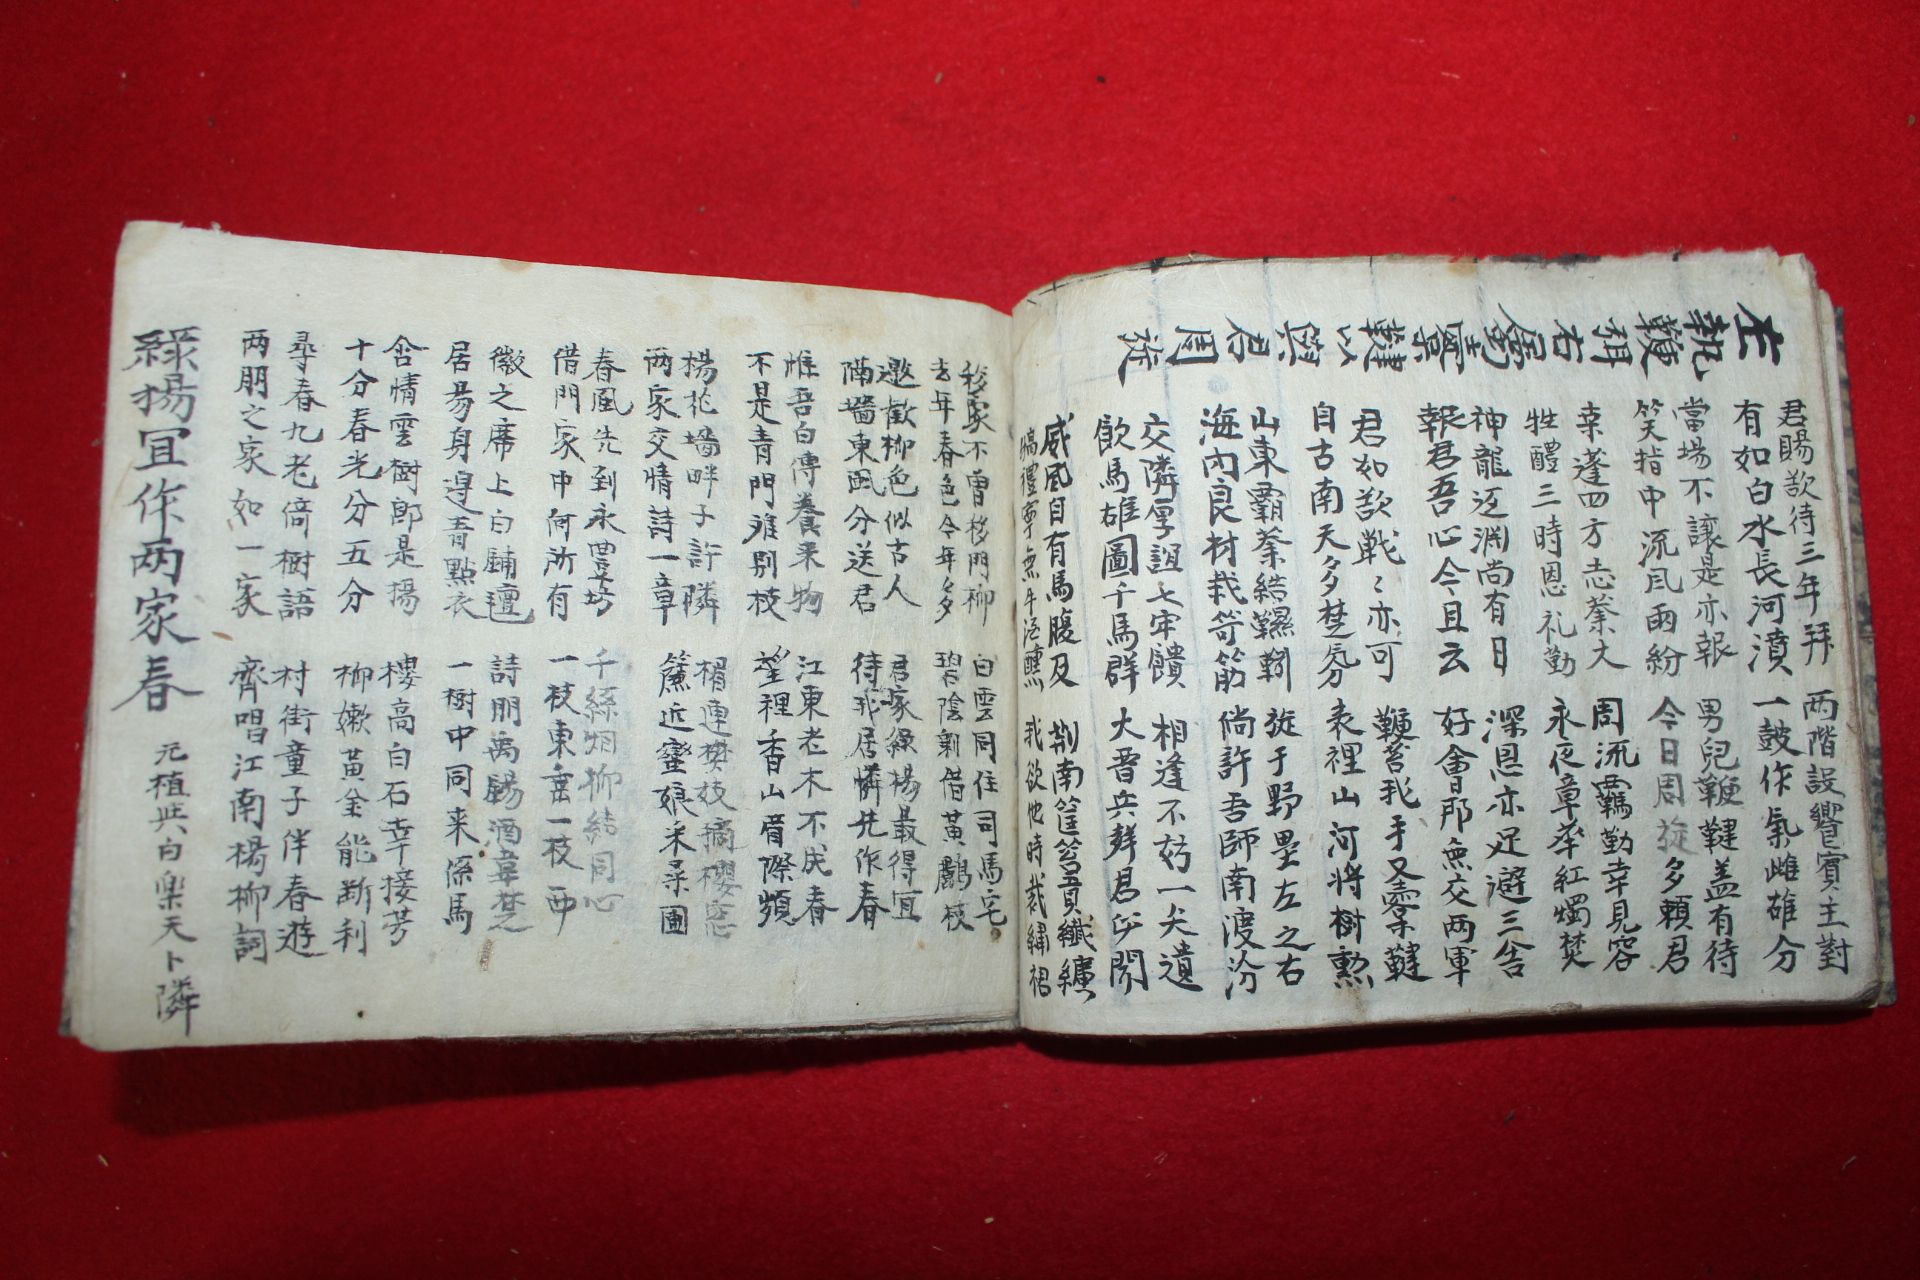 左執鞭弭右屬櫜鞬以與君周旋
君賜欲待三年拜 两階設饗賓主對
有如白水長河濆 一鼓作氣雌雄分
當場不讓是亦報 男兒鞭鞬盖有待
笑指中流風雨紛 今日周旋多頼君
桒蓬四方志業大 周流羈勤幸見容
牲醴三時恩礼勤 永夜章华紅燭焚
神龍返渊尚有日 深恩亦足避三舍
報君吾心今且云 好會那無交两軍
君如欲戦〻亦可 鞭苔我手又櫜鞬
自古南天多楚氛 表裡山河將樹勲
山東霸業結靷 旋于野壘左之右
海內良材栽笴筋 倘許吾師南渡汾
交隣厚誼七牢饋 相逢不妨一矢遺
飮馬雄圖千馬群 大晋兵鋒君必聞
威風自有馬腹及 荆南筐筥貢纖纊
犒禮寧無牛酒醺 我欲他時裁繡裙
移家不曾移門柳 白雲同住司馬宅
去年春色今年多 碧陰新借黃鸝枝
邀歡柳色似古人 君家綠楊最得宜
隔墻東風分送君 待我居憐共作春
惟吾白傳養来物 江東老木不成春
不是青門雅別枝 望裡香山眉際頻
楊花墻畔子許隣 楣連樊妓摘櫻窓
两家交情詩一章 簾近蛮娘采菜圃
春風先到永豊坊 千絲烟柳結同心
借門家中何所有 一枝東垂一枝西
微之席上白鋪氊 詩朋禹錫酒韋楚
居易身邊青點衣 一樹中同来係馬
含情雲樹郎是楊 樓高白石幸接芳
十分春光分五分 柳嫩黃金能断利
尋春九老倚樹語 村街童子伴春遊
两朋之家如一家 齊唱江南楊柳詞
綠揚宜作两家春 元植與白樂天卜隣